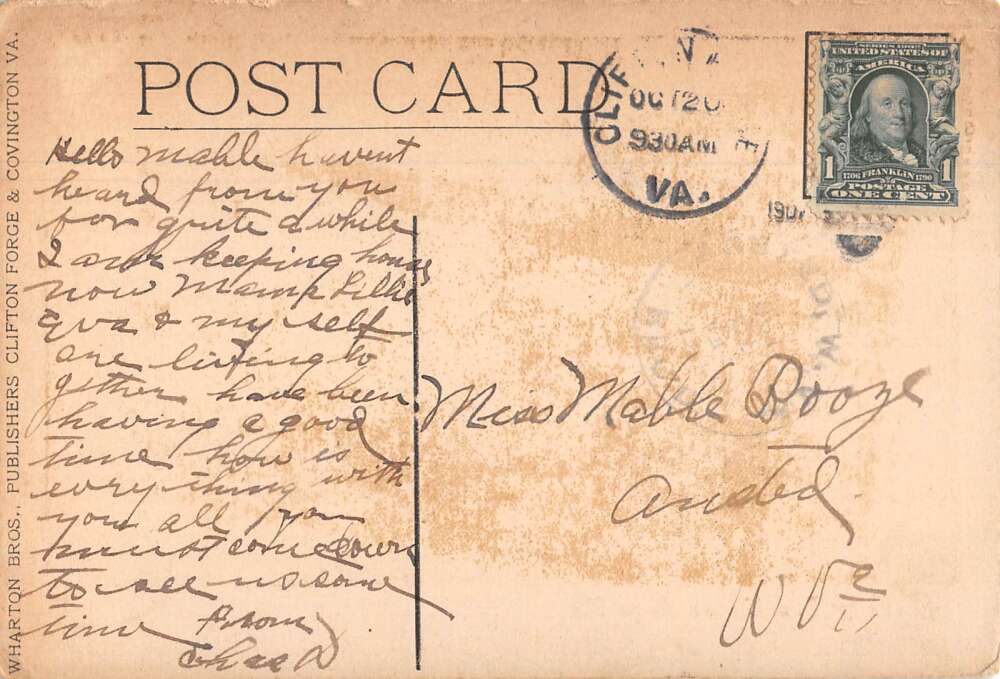 POST CARD
WHARTON BROS., PUBLISHERS CLIFTON FORGE & COVINGTON VA.
CLIFTON
OCT 20
930AM
VA.
1907
SERIES 1902
UNITED STATES OF
AMERICA
1 1
1706 FRANKLIN 1790
POSTAGE
ONE CENT
Hello Mable havent
heard from you
for quite a while
I am keeping house
now Mama Lillie
Eva & my self
are living to
gether have been
having a good
time how is
everything with
you all you
must come down
to see us some
time From
Miss Mable Booze
W Va